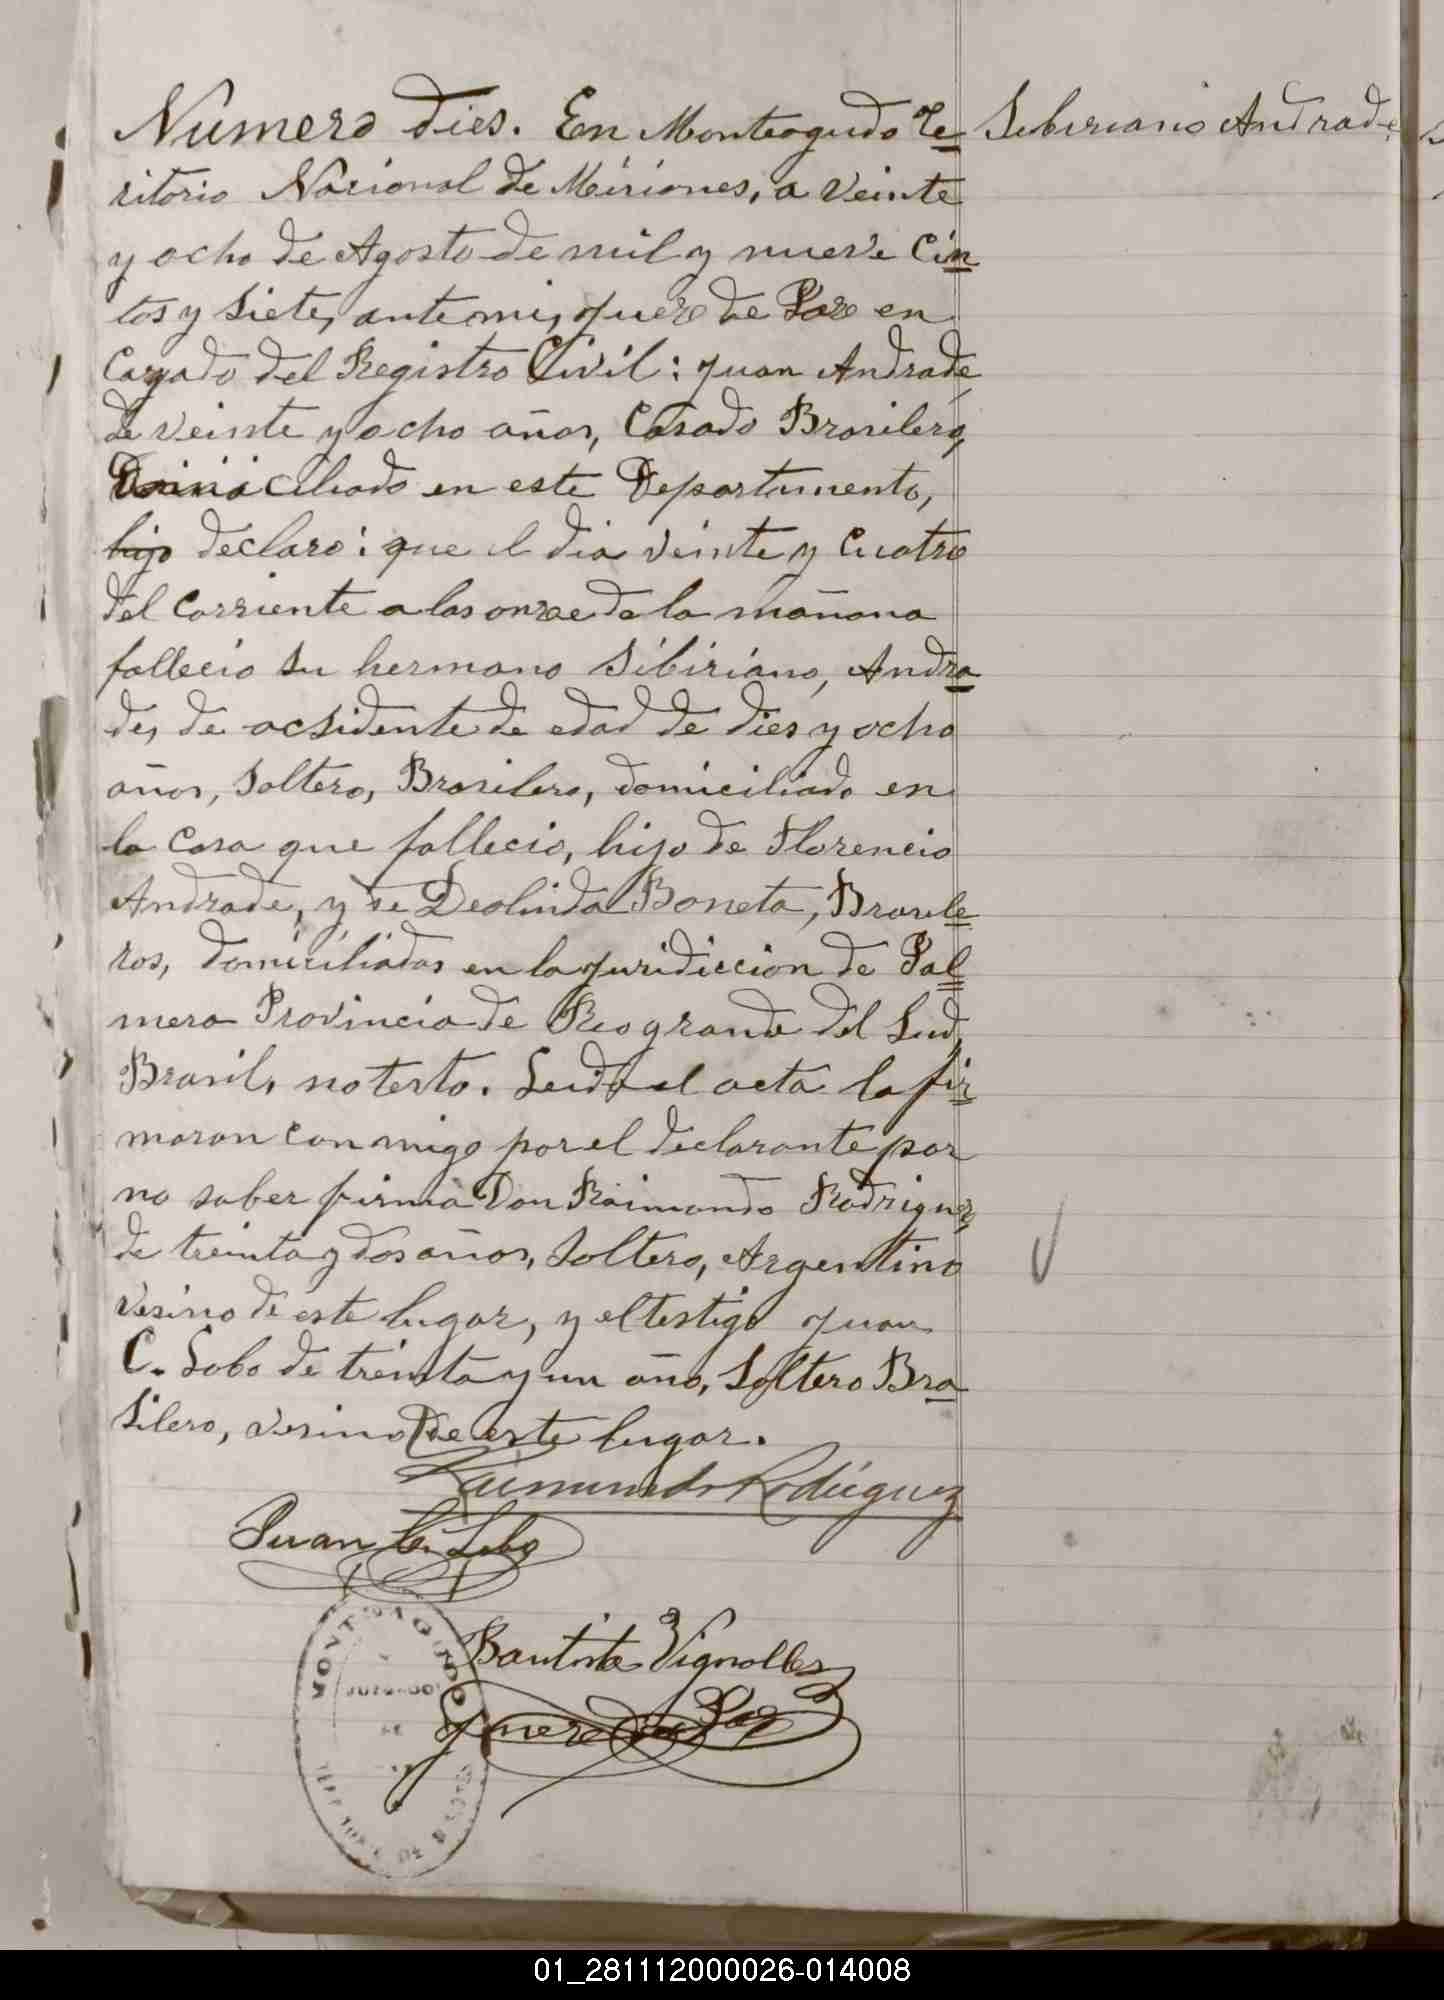 Numero dies. En Monteagudo Te
Sibiriano Andrade
ritorio Nasional de Misiones, a veinte
y ocho de Agosto de mil y nueve Cien
tos y siete, ante mi, Juez de Paz en
Cargado del Registro Civil: Juan Andrade,
de veinte y ocho años, Casado Brasilero,
Domiciliado en este Departamento,
hijo declaro: que el dia veinte y cuatro
del corriente a las onze de la mañana
fallecio su hermano Sibiriano, Andra
de, de acsidente de edad de dies y ocho
años, Soltero, Brasilero, domiciliado en
la Casa que fallecio, hijo de Florencio
Andrade, y de Deolinda Boneta, Brasile
ros, domiciliados en la juridiccion de Pal
mera Provincia de Rio grande del Sud,
Brasil, no testo. Leida el acta la fir
maron con migo por el declarante por
no saber firma Don Raimundo Rodriguez,
de treinta y dos años, Soltero, Argentino
vesino de este lugar, y el testigo Juan
C. Lobo de treinta y un año, Soltero Bra
silero, vesino de este lugar.
Raimundo Rodriguez
Juan C. Lobo
Bautista Vignolles
Juez de Paz
MONTEAGUDO
JUZGADO
DE
01_281112000026-014008